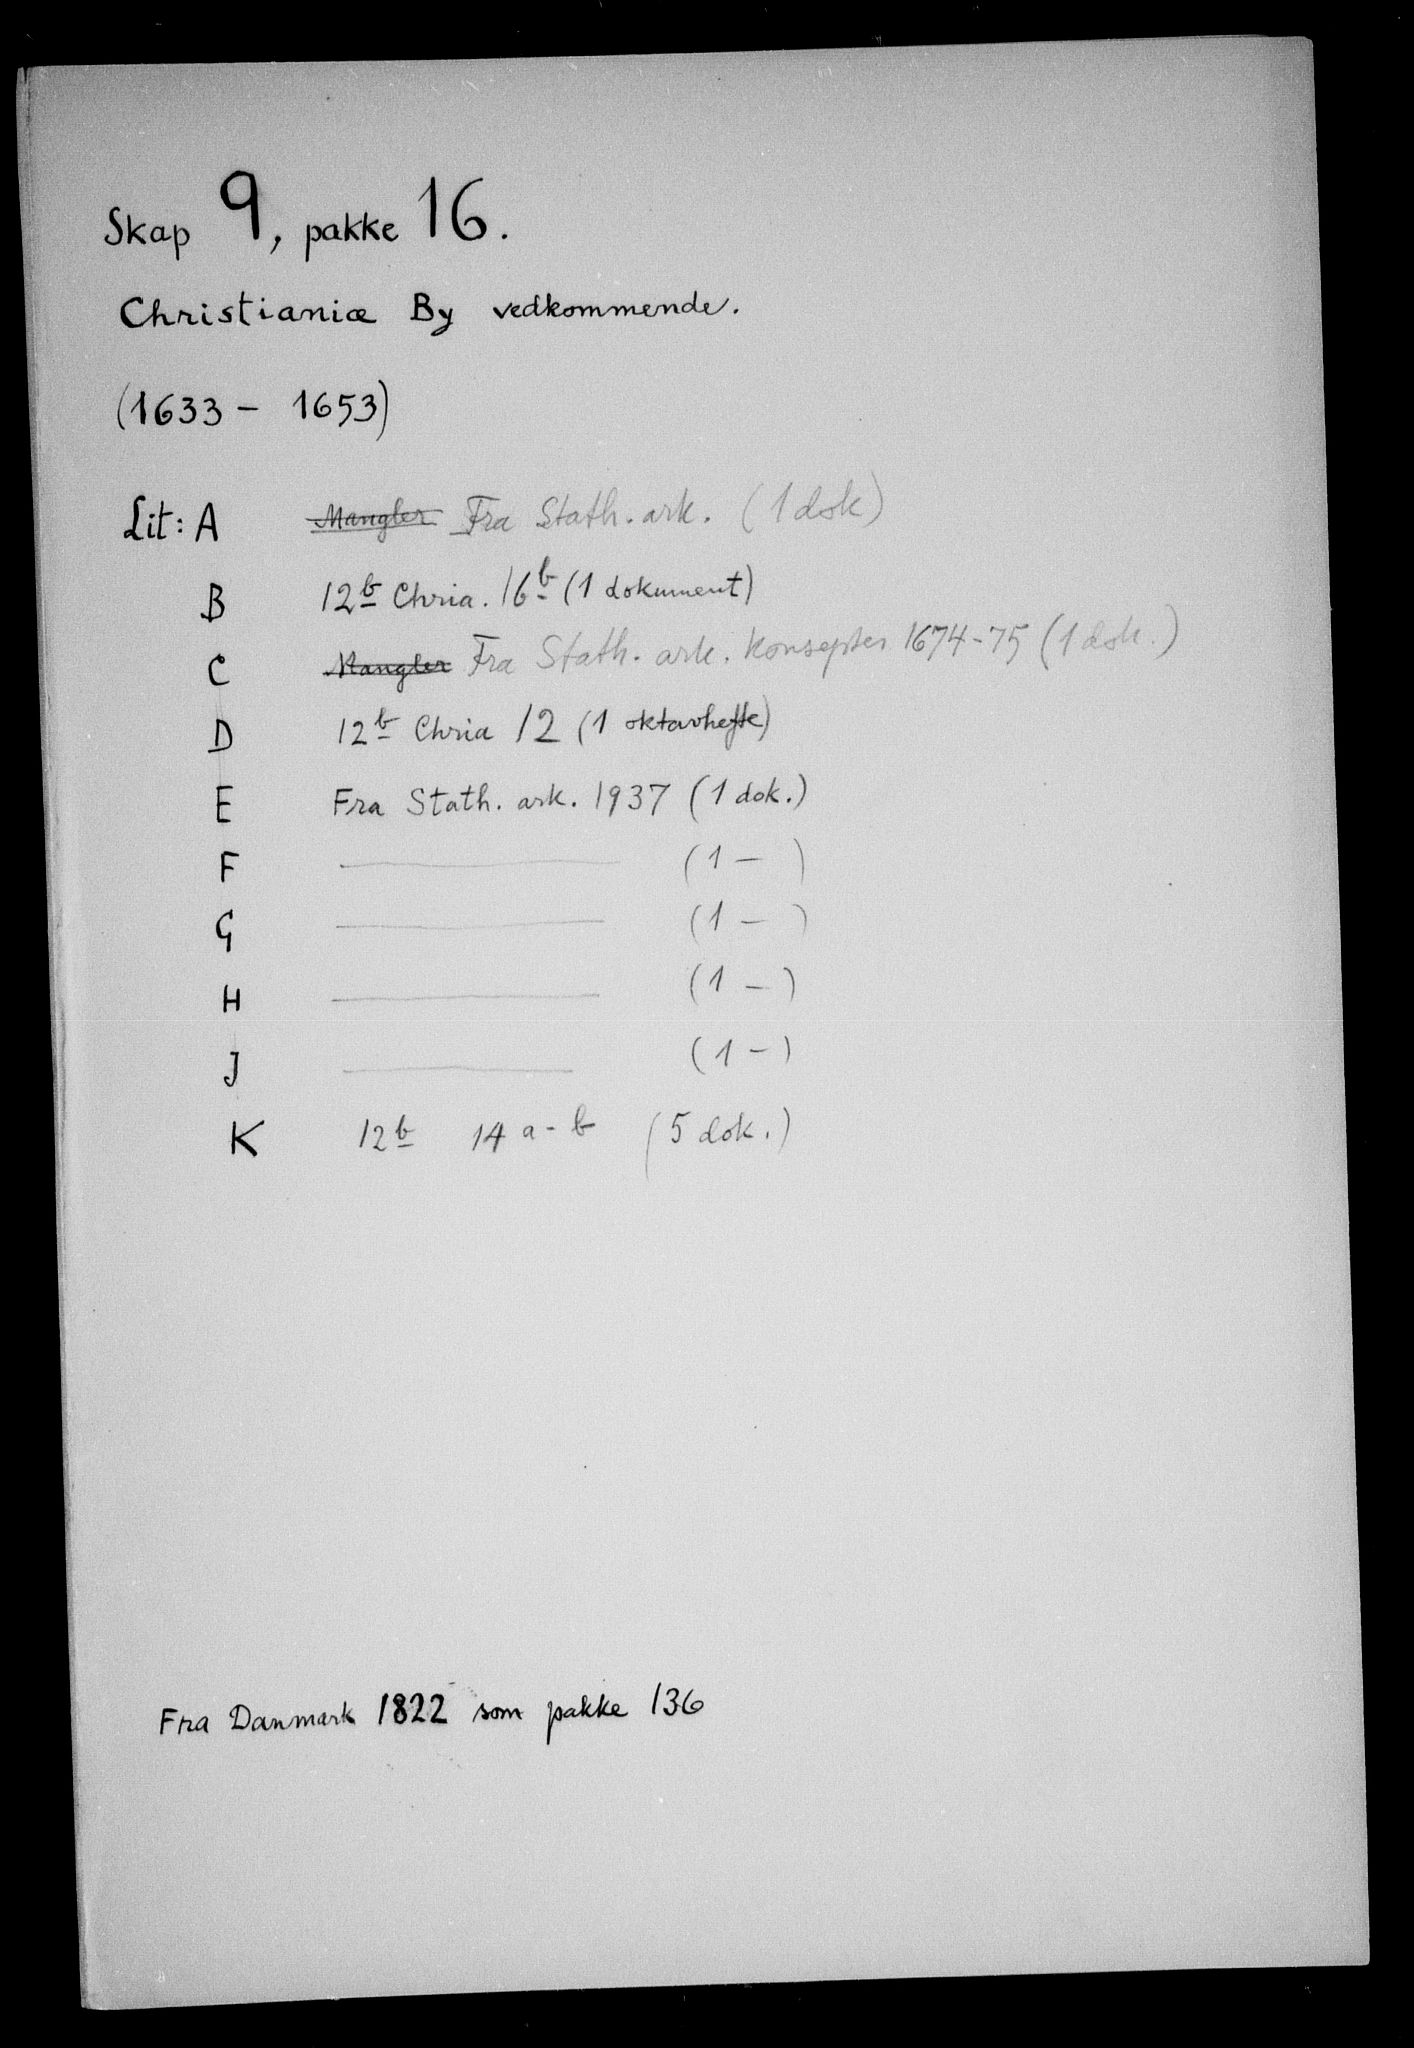 Skap 9, pakke 16.
Christianiæ By vedkommende.
(1633 - 1653)
Lit: A Mangler Fra Stath. ark. (1 dok)
B 12b Chria. 16b (1 dokument)
C Mangler Fra Stath. ark. Konsepter 1674-75 (1 dok.)
D 12b Chria 12 (1 oktavhefte)
E Fra Stath. ark. 1937 (1 dok.)
F ——— (1 - )
G ——— (1 - )
H ——— (1 - )
J ——— (1 - )
K 12b 14 a-b (5 dok.)
Fra Danmark 1822 som pakke 136